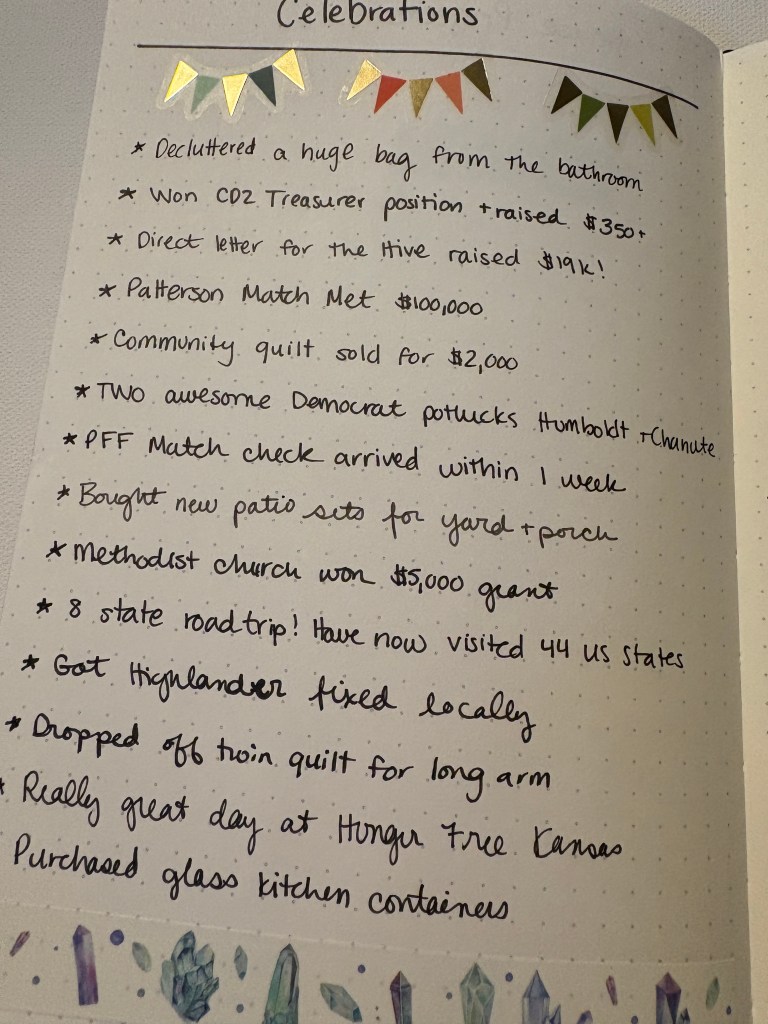 Celebrations
* Decluttered a huge bag from the bathroom
* Won CD2 Treasurer position + raised $350+
* Direct letter for the Hive raised $19k!
* Patterson Match Met $100,000
* Community quilt sold for $2,000
* TWO awesome Democrat potlucks Humboldt + Chanute
* PFF Match check arrived within 1 week
* Bought new patio sets for yard + porch
* Methodist church won $5,000 grant
* 8 state roadtrip! Have now visited 44 US States
* Got Highlander fixed locally
* Dropped off twin quilt for long arm
* Really great day at Hunger Free Kansas
Purchased glass kitchen containers